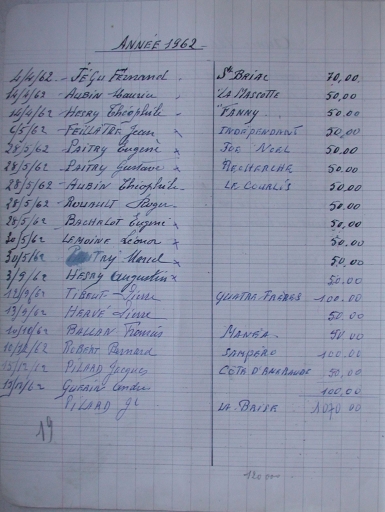 ANNÉE 1962
4/4/62 - JÉGU Fernand St BRIAC 70,00
14/4/62 - AUBIN Maurice "LA MASCOTTE 50,00
14/4/62 - HENRY Théophile "FANNY 50,00
6/5/62 - FEUILLATRE Jean x INDÉPENDANT 50,00
28/5/62 - PAITRY Eugène x JOE NOEL 50,00
28/5/62 - PAITRY Gustave x RECHERCHE 50,00
28/5/62 - AUBIN Théophile LE COURLIS 50,00
28/5/62 - ROUAULT 50,00
28/5/62 BACHALOT Eugène x 50,00
30/5/62 LEMOINE Léonor x 50,00
30/5/62 Marcel x 50,00
3/9/62 HENRY Augustin x 50,00
12/9/62 Pierre QUATRE FRÈRES 100,00
13/9/62 HERVÉ Pierre 50,00
10/10/62 BALLAN Francis MANEA 50,00
10/12/62 ROBERT Bernard SAMPERO 100,00
15/12/62 PILARD Jacques CÔTE D'EMERAUDE 50,00
GUÉRIN 100,00
PILARD LA BRISE 1070 00
19